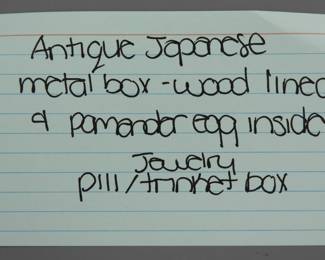 Antique Japanese
metal box - wood lined
a pomander egg inside
Jewelry
pill/trinket box